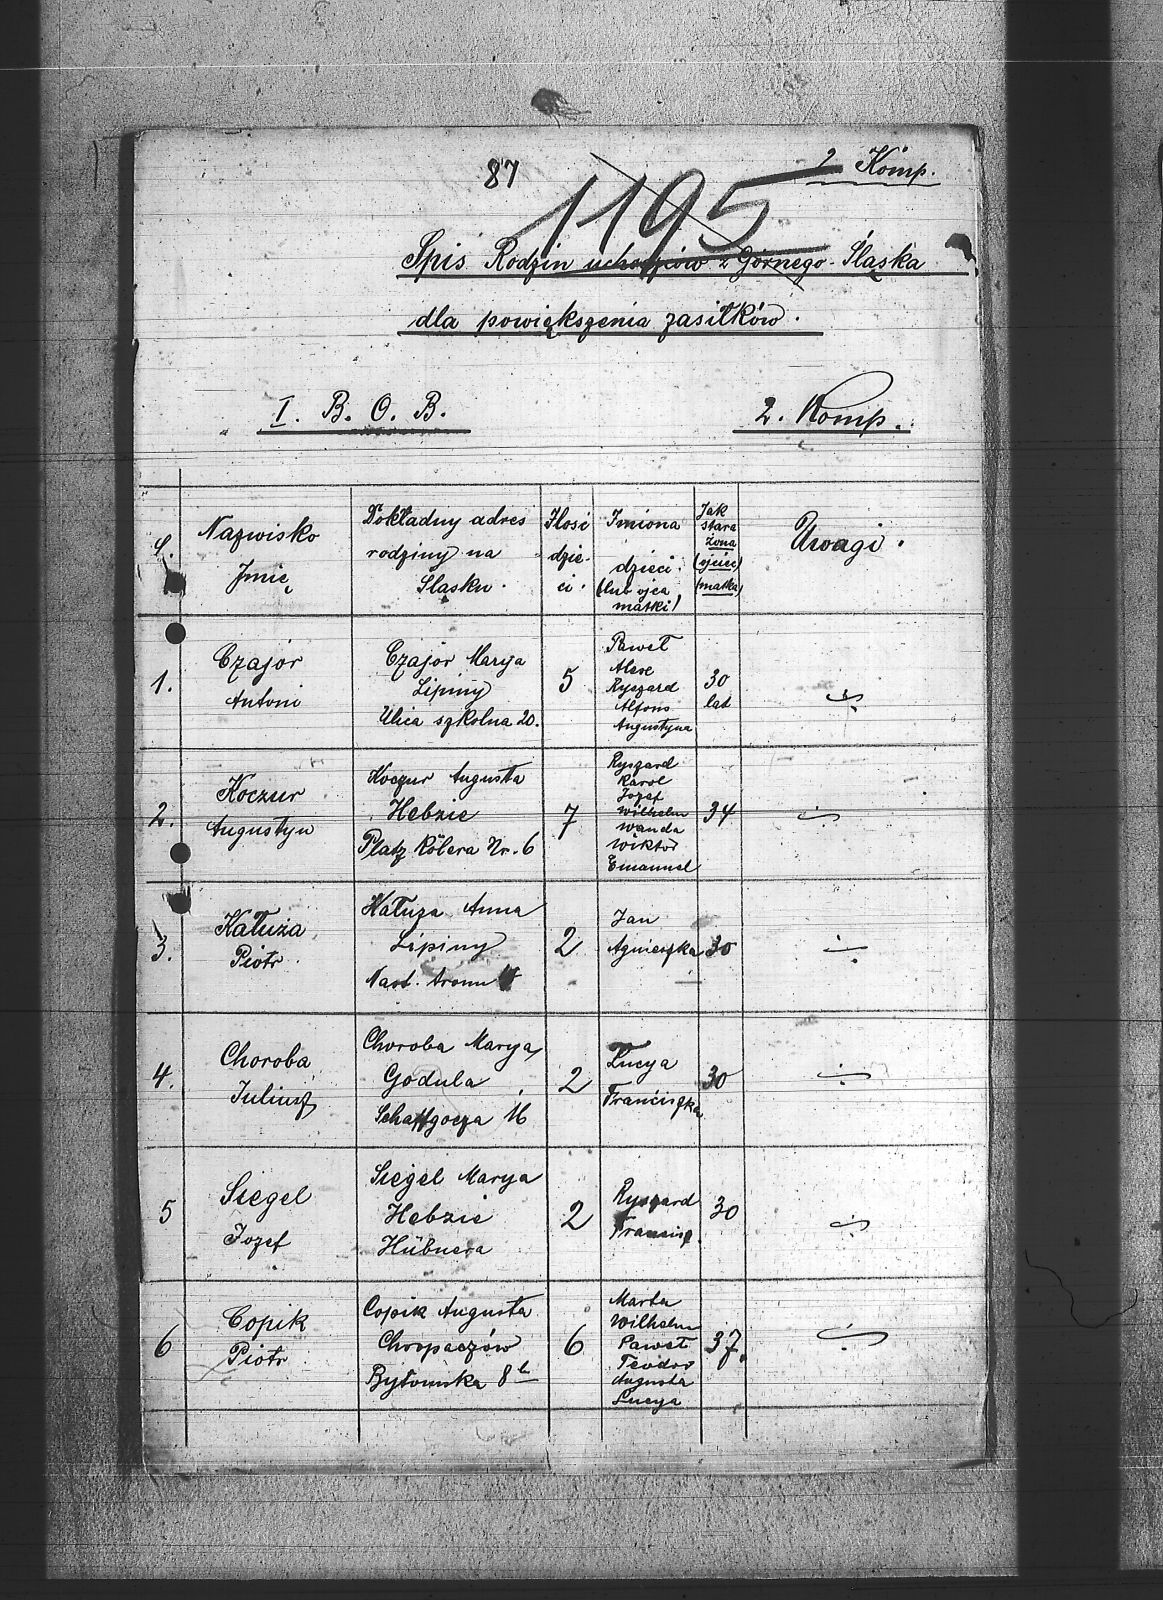 87
2 Komp.
1195
Spis Rodzin uchodzców z Górnego-Śląska
dla powiększenia zasiłków.
I. B. O. B.
2. Komp.
L.
Nazwisko
Imię
Dokładny adres
rodziny na
Śląsku.
Ilosć
dzie-
ci.
Imiona
dzieci.
(lub ojca
matki)
Jak
stara
żona
(ojciec)
(matka)
Uwagi.
1.
Czajor
Antoni
Czajor Marya
Lipiny
Ulica szkolna 20.
5
Paweł
Ryszard
Alfons
Augustyna
30
lat
2.
Koczur
Augustyn
Koczur Augusta
Hebzie
Platz Kölera Nr. 6
7
Ryszard
Karol
Jozef
Wilhelm
Wanda
Wiktor
Emanuel
34
3.
Kałuża
Piotr
Kałuza Anna
Lipiny
2
Jan
Agnieszka
30
4.
Choroba
Juliusz
Choroba Marya
Godula
Schaffgocza 16
2
Łucya
Franciszka
30
5
Siegel
Jozef
Siegel Marya
Hebzie
Hübnera
2
Ryszard
Francisz.
30
6
Copik
Piotr
Copik Augusta
Chropaczów
Bytomska 8b
6
Marta
Wilhelm
Paweł
Teodor
Augusta
Lucya
37.